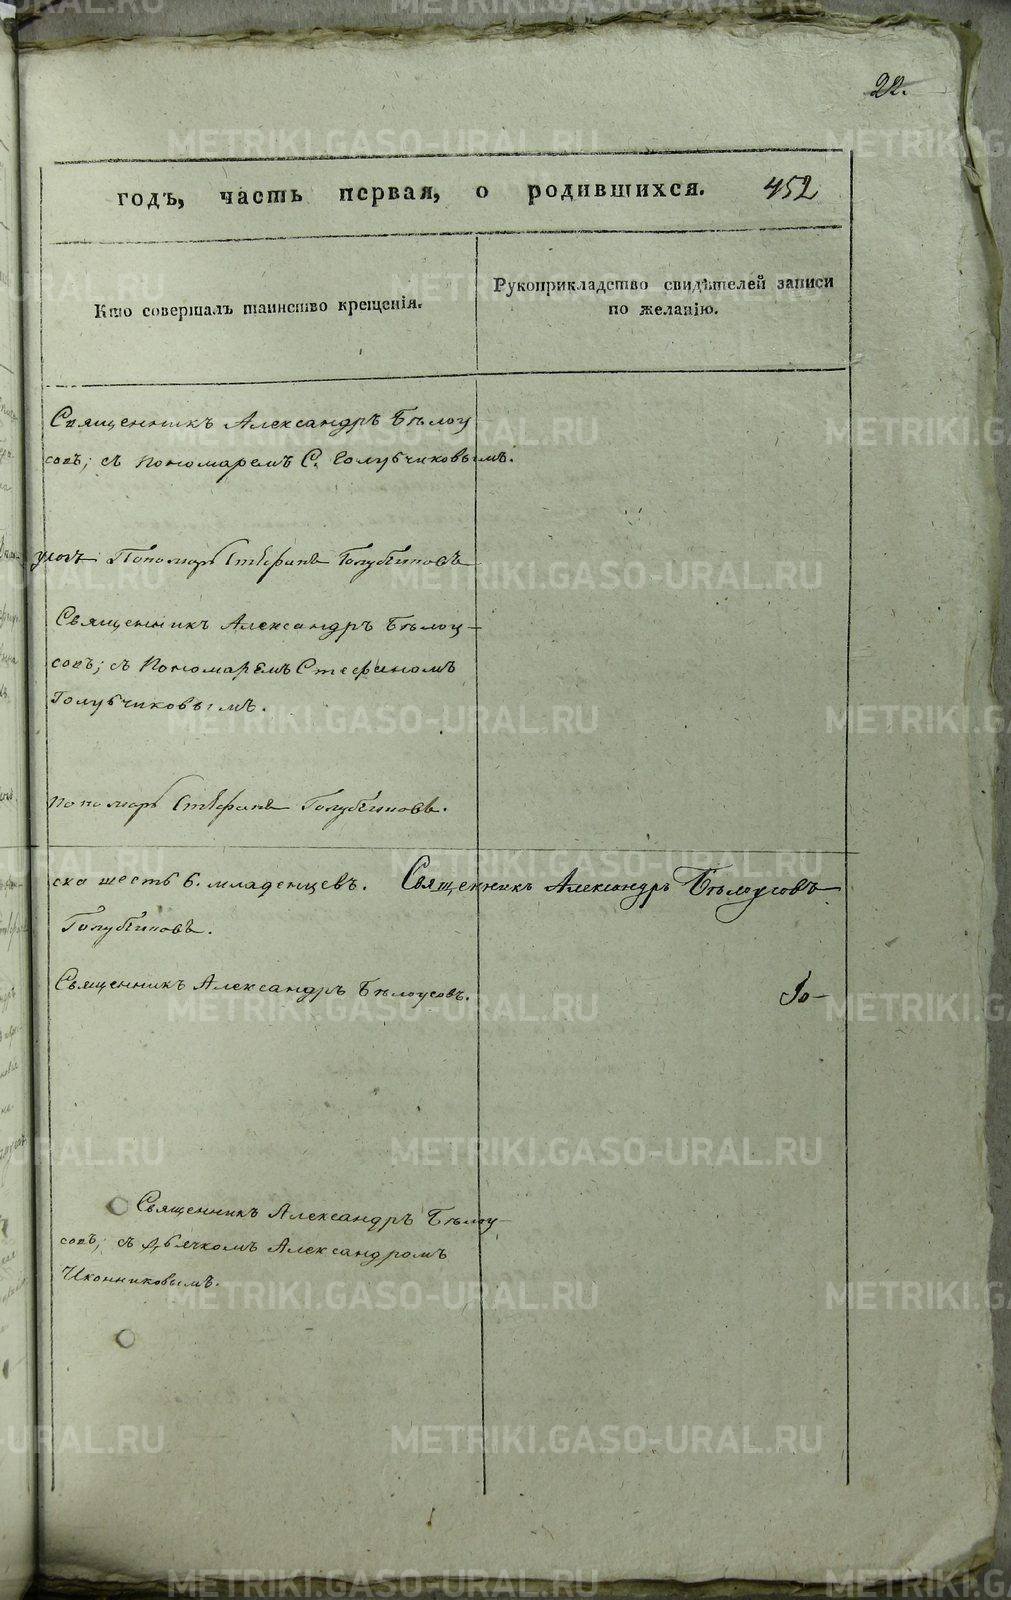 22.
годъ, часть первая, о родившихся. 452
Кто совершалъ таинство крещенія.
Рукоприкладство свидѣтелей записи
по желанію.
Священникъ Александръ Бѣлоу
совъ; съ Пономаремъ С. Голубчиковымъ.
Пономарь Стефанъ Голубчиковъ
Священникъ Александръ Бѣлоу-
совъ; съ Пономаремъ Стефаномъ
Голубчиковымъ.
пономарь Стефанъ Голубчиковъ.
ска шесть 6. младенцевъ. Священникъ Александръ Бѣлоусовъ
Голубчиковъ.
Священникъ Александръ Бѣлоусовъ.
Священникъ Александръ Бѣлоу-
совъ; съ дьячкомъ Александромъ
Иконниковымъ.
METRIKI.GASO-URAL.RU